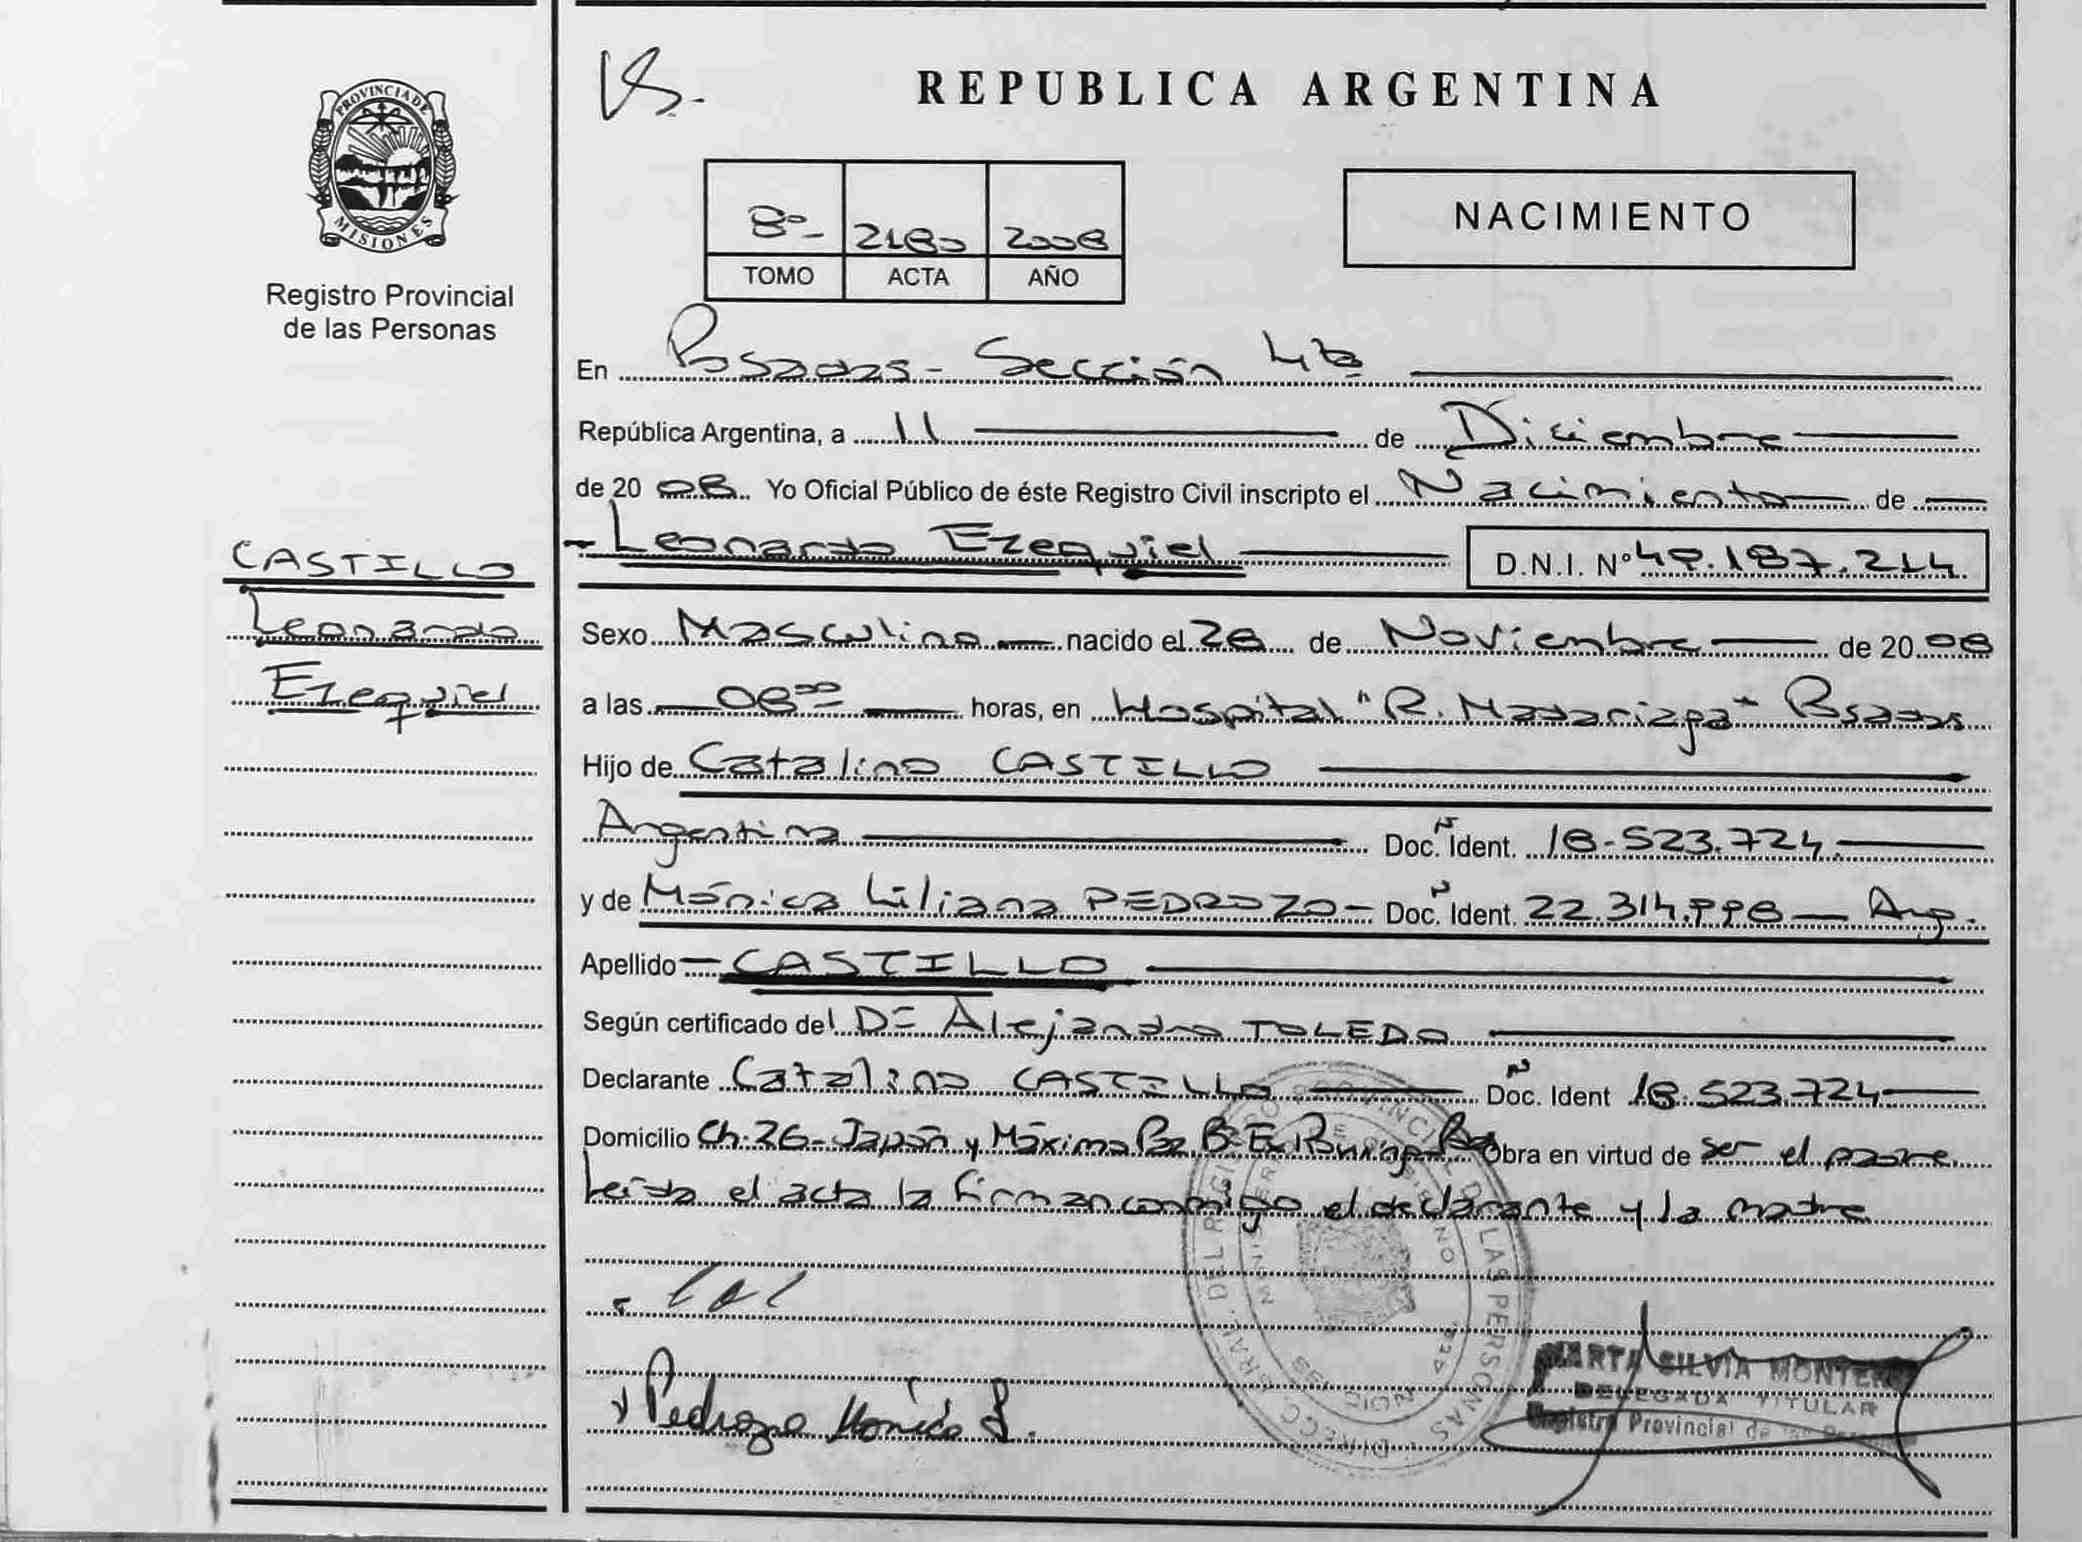 PROVINCIA DE
MISIONES
Registro Provincial
de las Personas
CASTILLO
Leonardo
Ezequiel
REPUBLICA ARGENTINA
8º- 2180 2008
TOMO ACTA AÑO
NACIMIENTO
En Posadas - Sección 4ta
República Argentina, a 11 de Diciembre
de 2008. Yo Oficial Público de éste Registro Civil inscripto el Nacimiento de
- Leonardo Ezequiel D.N.I. Nº 49.187.214
Sexo Masculino nacido el 28 de Noviembre de 2008
a las 08 00 horas, en Hospital "R. Madariaga" Posadas
Hijo de Catalino CASTILLO
Argentina Doc. Ident. 18.523.724.
y de Mónica Liliana PEDROZO - Doc. Ident. 22.314.998 - Arg.
Apellido - CASTILLO
Según certificado del Dr Alejandro TOLEDO
Declarante Catalino CASTILLO Doc. Ident 18.523.724
Domicilio Ch. 26 - Japón y Máximo Paz Bº Obra en virtud de ser el padre
Leída el acta la firman conmigo el declarante y la madre
x Pedrozo Monica L.
MARTA SILVIA MONTERO
DELEGADA TITULAR
Registro Provincial de las Personas
DIRECC. GRAL. DEL REGISTRO PROVINCIAL DE LAS PERSONAS
MISIONES